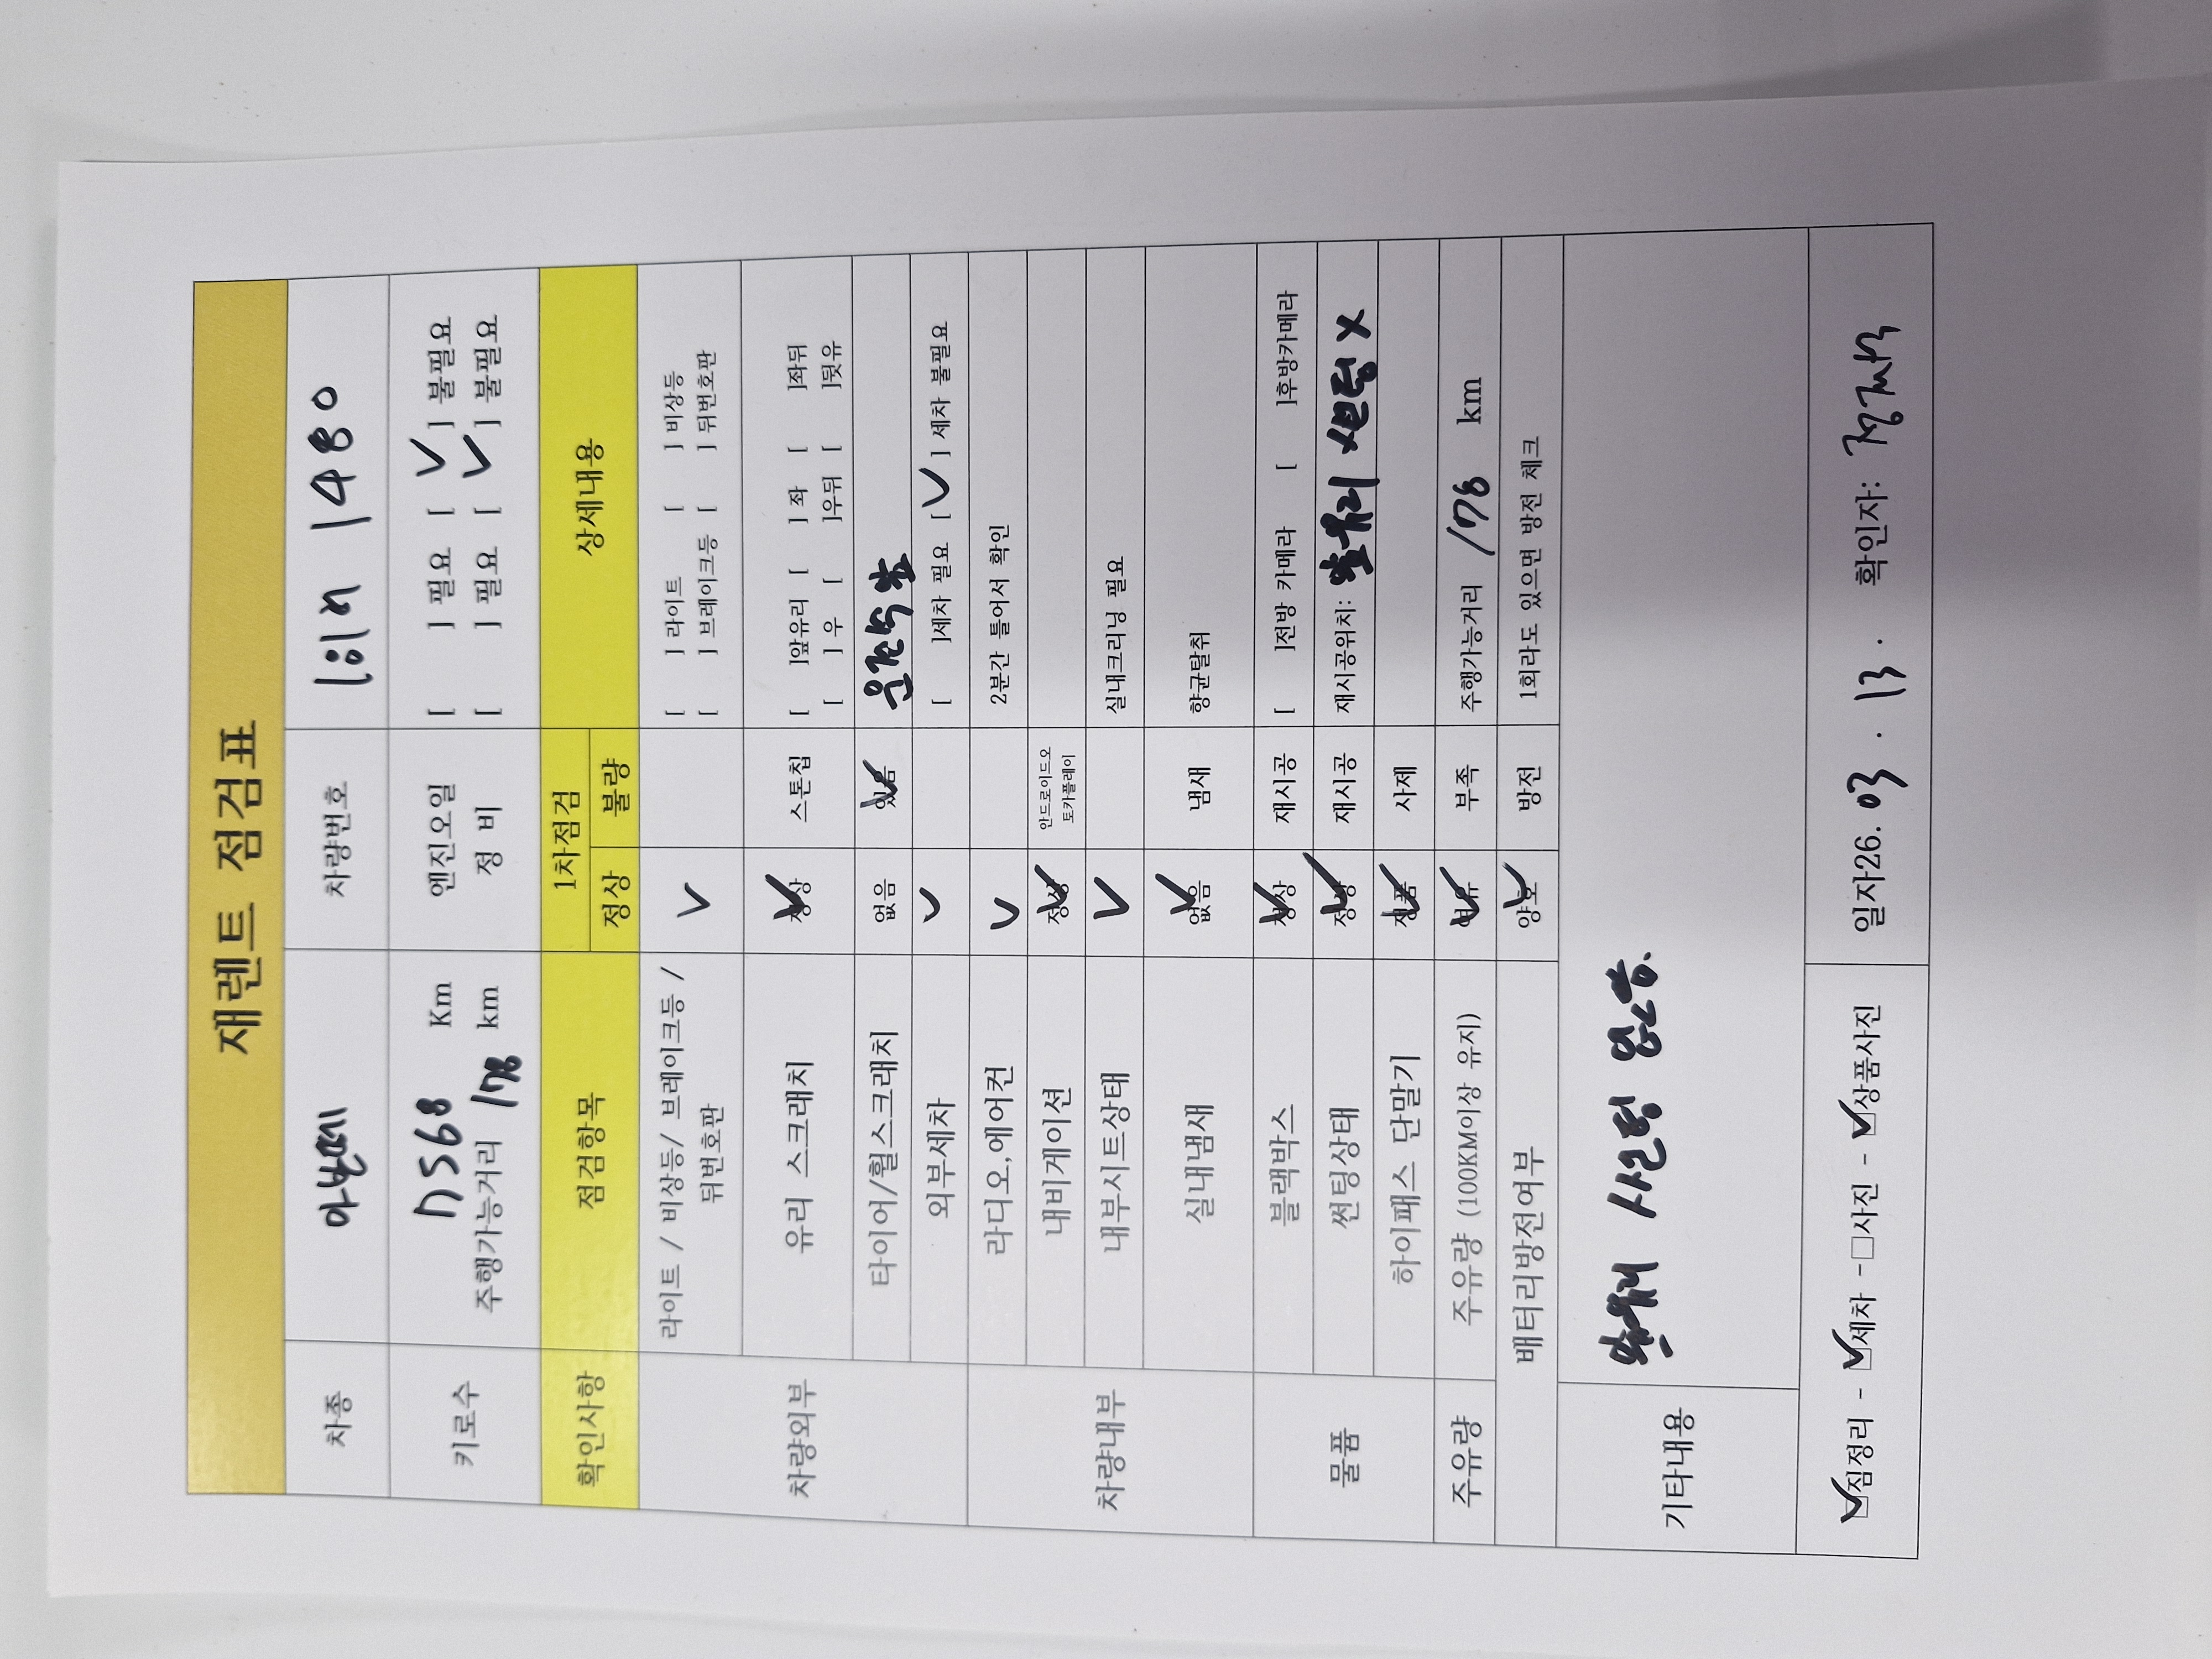 재렌트 점검표
차종 아반떼 차량번호 1호 1480
키로수 7568 Km 엔진오일 [ ] 필요 [ ✓ ] 불필요
주행가능거리 178 km 정 비 [ ] 필요 [ ✓ ] 불필요
확인사항 점검항목 1차점검 상세내용
정상 불량
차량외부 라이트 / 비상등/ 브레이크등 / ✓ [ ] 라이트 [ ] 비상등
뒤번호판 [ ] 브레이크등 [ ] 뒤번호판
유리 스크래치 정상 ✓ 스톤칩 [ ]앞유리 [ ] 좌 [ ]좌뒤
[ ] 우 [ ]우뒤 [ ]뒷유
타이어/휠스크래치 없음 있음 ✓ 운전석 앞
외부세차 ✓ [ ]세차 필요 [ ✓ ] 세차 불필요
차량내부 라디오,에어컨 ✓ 2분간 틀어서 확인
내비게이션 정상 ✓ 안드로이드오
토카플레이
내부시트상태 ✓ 실내크리닝 필요
실내냄새 없음 ✓ 냄새 향균탈취
물품 블랙박스 정상 ✓ 재시공 [ ]전방 카메라 [ ]후방카메라
썬팅상태 정상 ✓ 재시공 재시공위치: 앞유리 썬팅 X
하이패스 단말기 정품 ✓ 사제
주유량 주유량 (100KM이상 유지) 여유 ✓ 부족 주행가능거리 178 km
배터리방전여부 양호 ✓ 방전 1회라도 있으면 방전 체크
기타내용 앞유리 썬팅 없음.
☑짐정리 - ☑세차 -□사진 - ☑상품사진 일자26. 03 . 13 . 확인자: